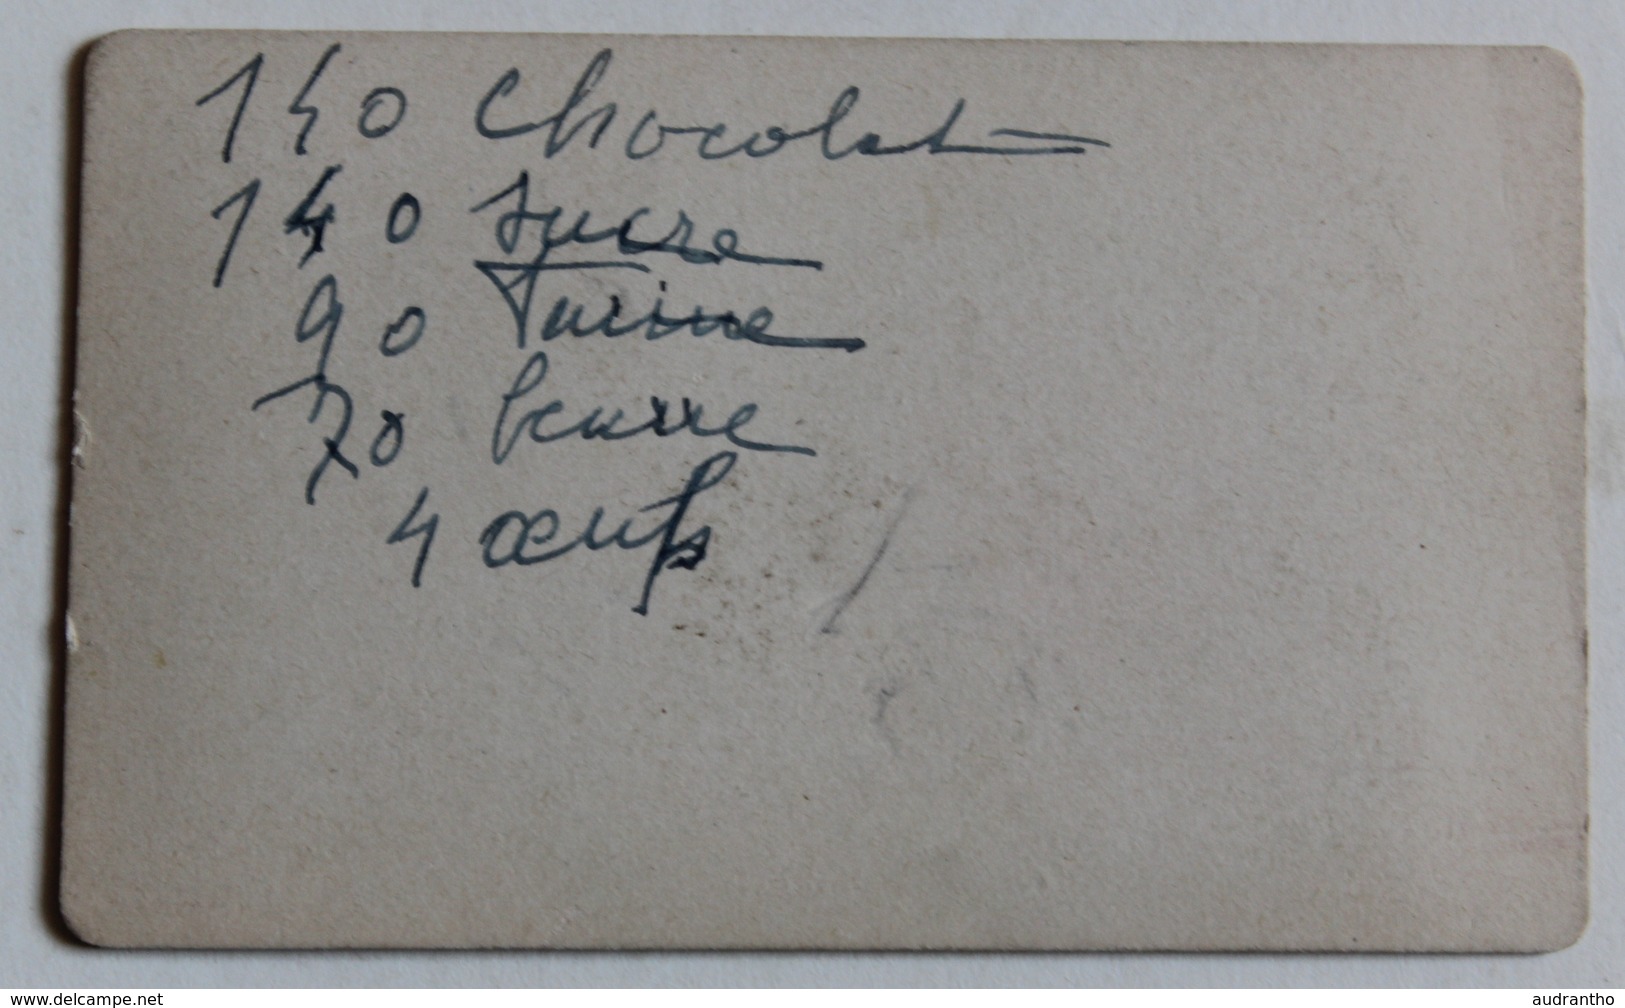 140 chocolat
140 sucre
90 Farine
70 beurre
4 œufs
www.delcampe.net
audrantho